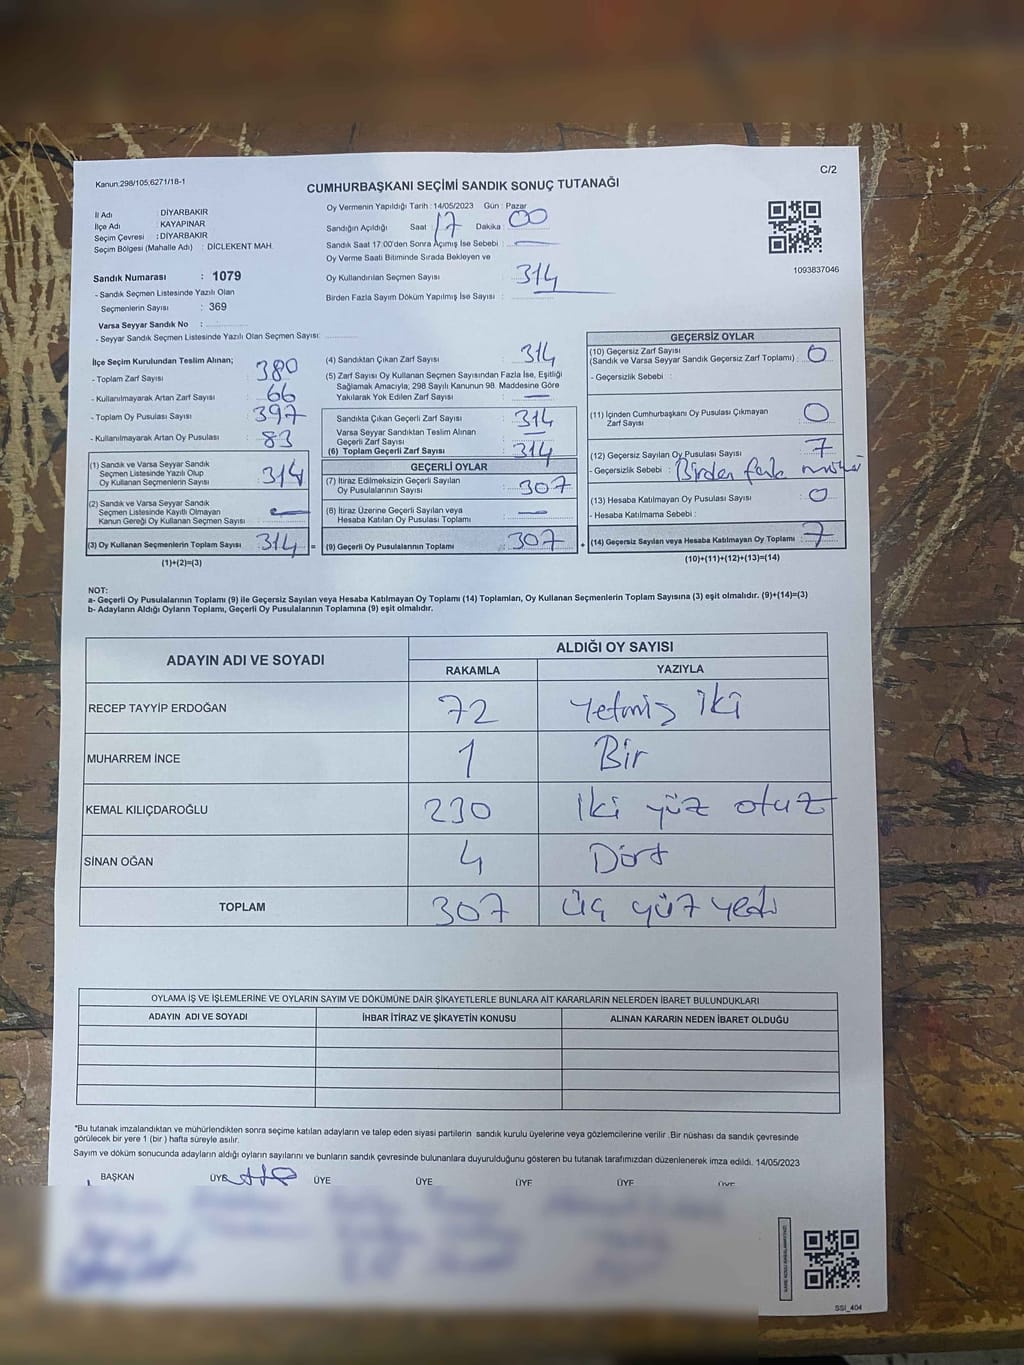 Kanun:298/105,6271/18-1
C/2
CUMHURBAŞKANI SEÇİMİ SANDIK SONUÇ TUTANAĞI
İl Adı : DİYARBAKIR
İlçe Adı : KAYAPINAR
Seçim Çevresi : DİYARBAKIR
Seçim Bölgesi (Mahalle Adı) : DİCLEKENT MAH.
Sandık Numarası : 1079
- Sandık Seçmen Listesinde Yazılı Olan
Seçmenlerin Sayısı : 369
Varsa Seyyar Sandık No :
- Seyyar Sandık Seçmen Listesinde Yazılı Olan Seçmen Sayısı:
Oy Vermenin Yapıldığı Tarih : 14/05/2023 Gün : Pazar
Sandığın Açıldığı Saat : 17 Dakika : 00
Sandık Saat 17.00'den Sonra Açımış İse Sebebi : —
Oy Verme Saati Bitiminde Sırada Bekleyen ve
Oy Kullandırılan Seçmen Sayısı 314
Birden Fazla Sayım Döküm Yapılmış İse Sayısı :
1093837046
İlçe Seçim Kurulundan Teslim Alınan;
- Toplam Zarf Sayısı : 380
- Kullanılmayarak Artan Zarf Sayısı : 66
- Toplam Oy Pusulası Sayısı : 397
- Kullanılmayarak Artan Oy Pusulası : 83
(1) Sandık ve Varsa Seyyar Sandık
Seçmen Listesinde Yazılı Olup
Oy Kullanan Seçmenlerin Sayısı : 314
(2) Sandık ve Varsa Seyyar Sandık
Seçmen Listesinde Kayıtlı Olmayan
Kanun Gereği Oy Kullanan Seçmen Sayısı : —
(3) Oy Kullanan Seçmenlerin Toplam Sayısı : 314 =
(1)+(2)=(3)
(4) Sandıktan Çıkan Zarf Sayısı : 314
(5) Zarf Sayısı Oy Kullanan Seçmen Sayısından Fazla İse, Eşitliği
Sağlamak Amacıyla, 298 Sayılı Kanunun 98. Maddesine Göre
Yakılarak Yok Edilen Zarf Sayısı : —
Sandıkta Çıkan Geçerli Zarf Sayısı : 314
Varsa Seyyar Sandıktan Teslim Alınan
Geçerli Zarf Sayısı : —
(6) Toplam Geçerli Zarf Sayısı : 314
GEÇERLİ OYLAR
(7) İtiraz Edilmeksizin Geçerli Sayılan
Oy Pusulalarının Sayısı : 307
(8) İtiraz Üzerine Geçerli Sayılan veya
Hesaba Katılan Oy Pusulası Toplamı : —
(9) Geçerli Oy Pusulalarının Toplamı : 307 +
GEÇERSİZ OYLAR
(10) Geçersiz Zarf Sayısı
(Sandık ve Varsa Seyyar Sandık Geçersiz Zarf Toplamı) : 0
- Geçersizlik Sebebi :
(11) İçinden Cumhurbaşkanı Oy Pusulası Çıkmayan
Zarf Sayısı : 0
(12) Geçersiz Sayılan Oy Pusulası Sayısı : 7
- Geçersizlik Sebebi : Birden
(13) Hesaba Katılmayan Oy Pusulası Sayısı : 0
- Hesaba Katılmama Sebebi :
(14) Geçersiz Sayılan veya Hesaba Katılmayan Oy Toplamı : 7
(10)+(11)+(12)+(13)=(14)
NOT:
a- Geçerli Oy Pusulalarının Toplamı (9) ile Geçersiz Sayılan veya Hesaba Katılmayan Oy Toplamı (14) Toplamları, Oy Kullanan Seçmenlerin Toplam Sayısına (3) eşit olmalıdır. (9)+(14)=(3)
b- Adayların Aldığı Oyların Toplamı, Geçerli Oy Pusulalarının Toplamına (9) eşit olmalıdır.
ADAYIN ADI VE SOYADI ALDIĞI OY SAYISI
RAKAMLA YAZIYLA
RECEP TAYYİP ERDOĞAN 72 Yetmiş iki
MUHARREM İNCE 1 Bir
KEMAL KILIÇDAROĞLU 230 iki yüz otuz
SİNAN OĞAN 4 Dört
TOPLAM 307 üç yüz yedi
OYLAMA İŞ VE İŞLEMLERİNE VE OYLARIN SAYIM VE DÖKÜMÜNE DAİR ŞİKAYETLERLE BUNLARA AİT KARARLARIN NELERDEN İBARET BULUNDUKLARI
ADAYIN ADI VE SOYADI İHBAR İTİRAZ VE ŞİKAYETİN KONUSU ALINAN KARARIN NEDEN İBARET OLDUĞU
*Bu tutanak imzalandıktan ve mühürlendikten sonra seçime katılan adayların ve talep eden siyasi partilerin sandık kurulu üyelerine veya gözlemcilerine verilir .Bir nüshası da sandık çevresinde
görülecek bir yere 1 (bir ) hafta süreyle asılır.
Sayım ve döküm sonucunda adayların aldığı oyların sayılarını ve bunların sandık çevresinde bulunanlara duyurulduğunu gösteren bu tutanak tarafımızdan düzenlenerek imza edildi. 14/05/2023
BAŞKAN ÜYE ÜYE ÜYE ÜYE ÜYE ÜYE
SSI_404